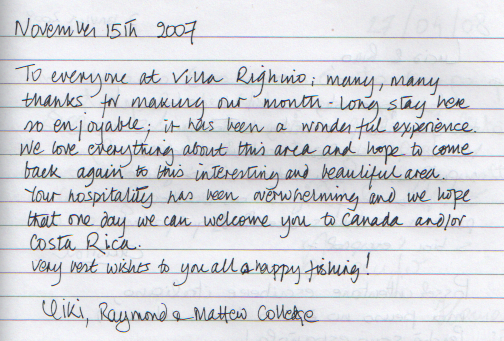 November 15th 2007
To everyone at Villa Righino; many, many
thanks for making our month-long stay here
so enjoyable; it has been a wonderful experience.
We love everything about this area and hope to come
back again to this interesting and beautiful area.
Your hospitality has been overwhelming and we hope
that one day we can welcome you to Canada and/or
Costa Rica.
Very best wishes to you all & happy fishing!
Viki, Raymond & Mattew College